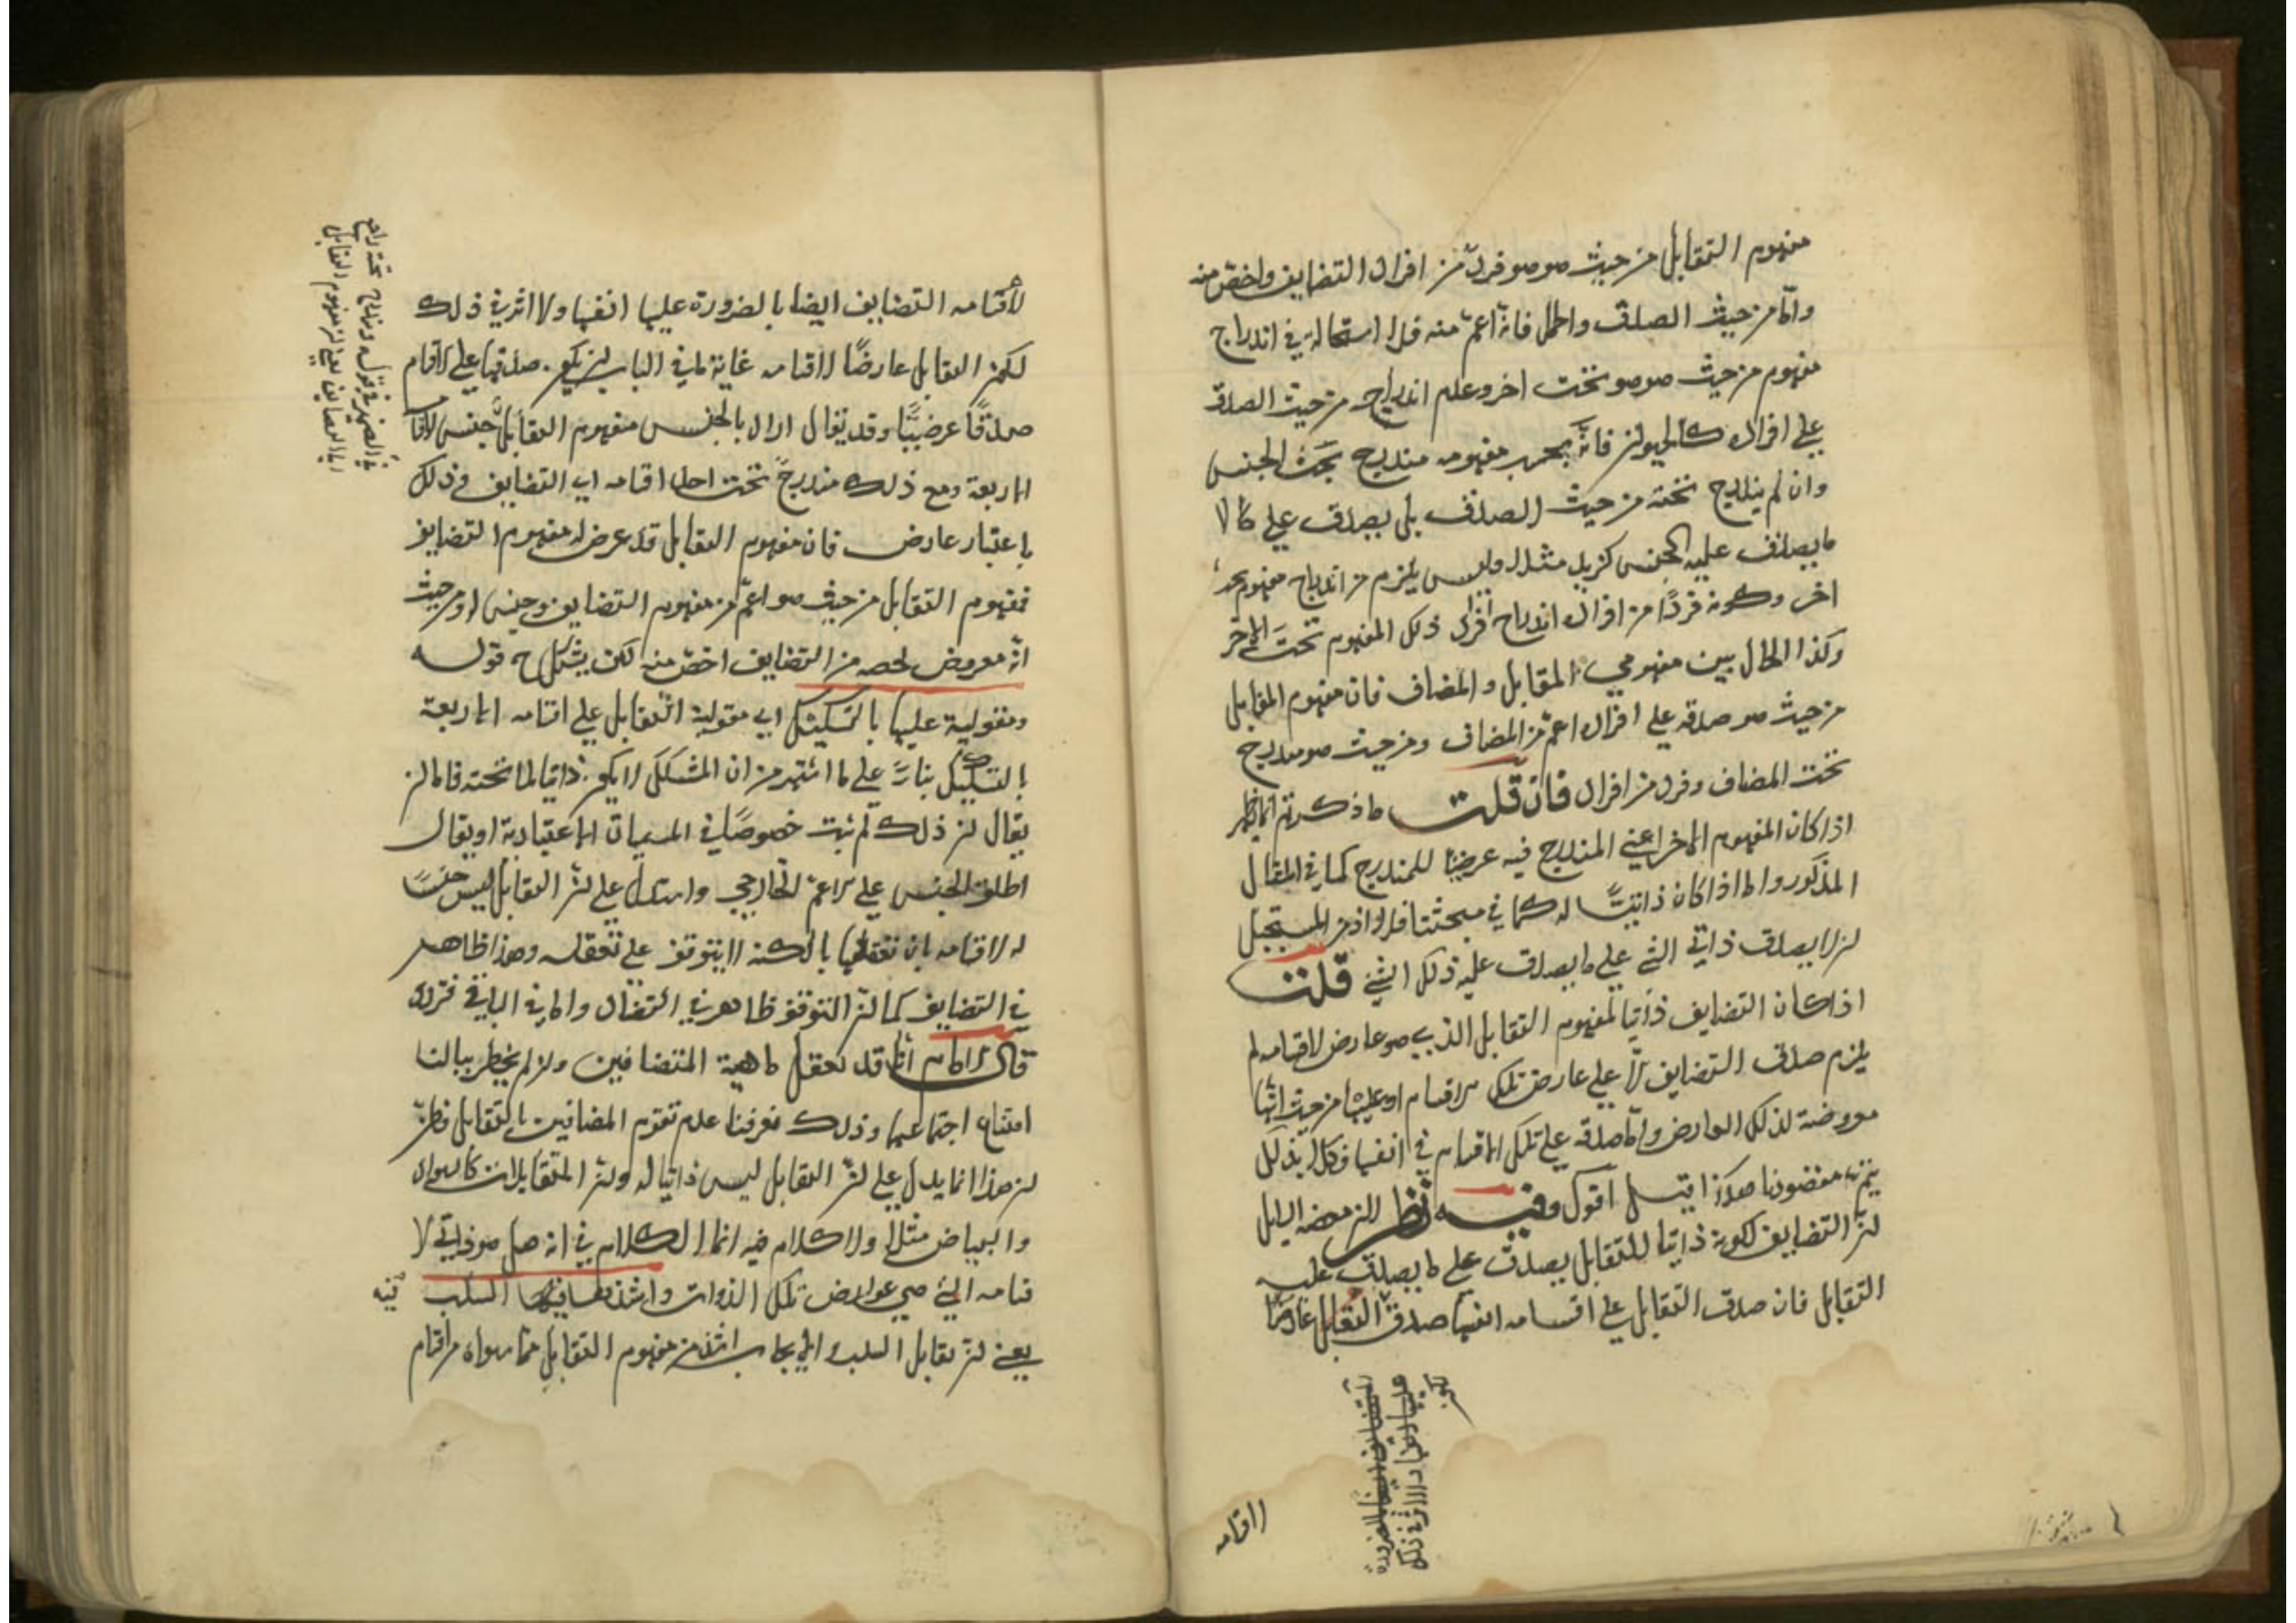 مفهوم التقابل من حيث هو هو فرد من افراد التضايف واخص منه
واما من حيث الصدق والحمل فانه اعم منه فلا استحالة في اندراج
مفهوم من حيث هو هو تحت اخر وعدم اندراجه من حيث الصدق
على افراده كالحيوان فانه بحسب مفهومه مندرج تحت الجنس
وان لم يندرج تحته من حيث الصدق بل يصدق على ما لا
ما يصدق عليه الجنس كزيد مثلا وليس يلزم من اندراج مفهوم تحت
اخر وكونه فردًا من افراده اندراج افراد ذلك المفهوم تحت الاخر
وكذا الحال بين مفهومي المقابل والمضاف فان مفهوم المقابل
من حيث هو صدقه على افراده اعم من المضاف ومن حيث هو مندرج
تحت المضاف وفرد من افراده فان قلت ما ذكرتم انما يظهر
اذا كان المفهوم الاخر اعني المندرج فيه عرضيا للمندرج كما في المقال
المذكور واما اذا كان ذاتيًا له كما في مبحثنا فلا اذ من المستحيل
ان لا يصدق ذاتي الشئ على ما يصدق عليه ذلك الشئ قلت
اذا كان التضايف ذاتيا لمفهوم التقابل الذي هو عارض لاقسامه لم
يلزم صدق التضايف الا على عارض تلك الاقسام او عليها من حيث انها
معروضة لذلك العارض واما صدقه على تلك الاقسام في انفسها فكلا بذلك
يتم مقصودنا هكذا قيل اقول وفيه نظر الدليل
ان التضايف لكونه ذاتيا للتقابل يصدق على ما يصدق عليه
التقابل فان صدق التقابل على اقسامه انفسها صدق التقابل عارضا
لاقسامه
لاقسامه التضايف ايضا بالضرورة عليها انفسها ولا اثر في ذلك
لكون التقابل عارضًا لاقسامه غاية ما في الباب ان يكون صدقها على الاقسام
صدقًا عرضيًا وقد يقال اراد بالجنس مفهوم التقابل جنس لاقسامه
الاربعة ومع ذلك مندرج تحت احد اقسامه اي التضايف وذلك
باعتبار عارض فان مفهوم التقابل قد عرض له مفهوم التضايف
فمفهوم التقابل من حيث هو اعم من مفهوم التضايف وجنس له ومن حيث
انه معروض لحصه من التضايف اخص منه لكن يشكل ح قوله
ومقولية عليها بالتشكيك اي مقولية التقابل على اقسامه الاربعة
بالتشكيك بناءً على ما اشتهر من ان المشكك لا يكون ذاتيا لما تحته فاما ان
يقال ان ذلك لم يثبت خصوصًا في المسميات الاعتبارية او يقال
اطلق الجنس على الاعم الخارجي واستدل على ان التقابل ليس جنسًا
له لاقسامه بان تعقلها بالكنه لا يتوقف على تعقله وهذا ظاهر
في التضايف كما ان التوقف ظاهر في التضاد واما في الباقي فتردد
قال الامام انا قد نعقل ماهية المتضايفين وان لم يخطر ببالنا
امتناع اجتماعهما وذلك يعرفنا عدم تقوم المضافين بالتقابل
ان هذا انما يدل على ان التقابل ليس ذاتيا له وان المتقابلات كالسواد
والبياض مثلا ولا كلام فيه انما الكلام في انه هل هو ذاتي لا
قسامه التي هي عوارض تلك الذوات واشدها فيها السلب
يعني ان تقابل السلب والايجاب اشد من مفهوم التقابل مما سواه من اقسام
في الضمير في قوله ومندرج تحته راجع
الى التضايف يعني ان مفهوم التقابل